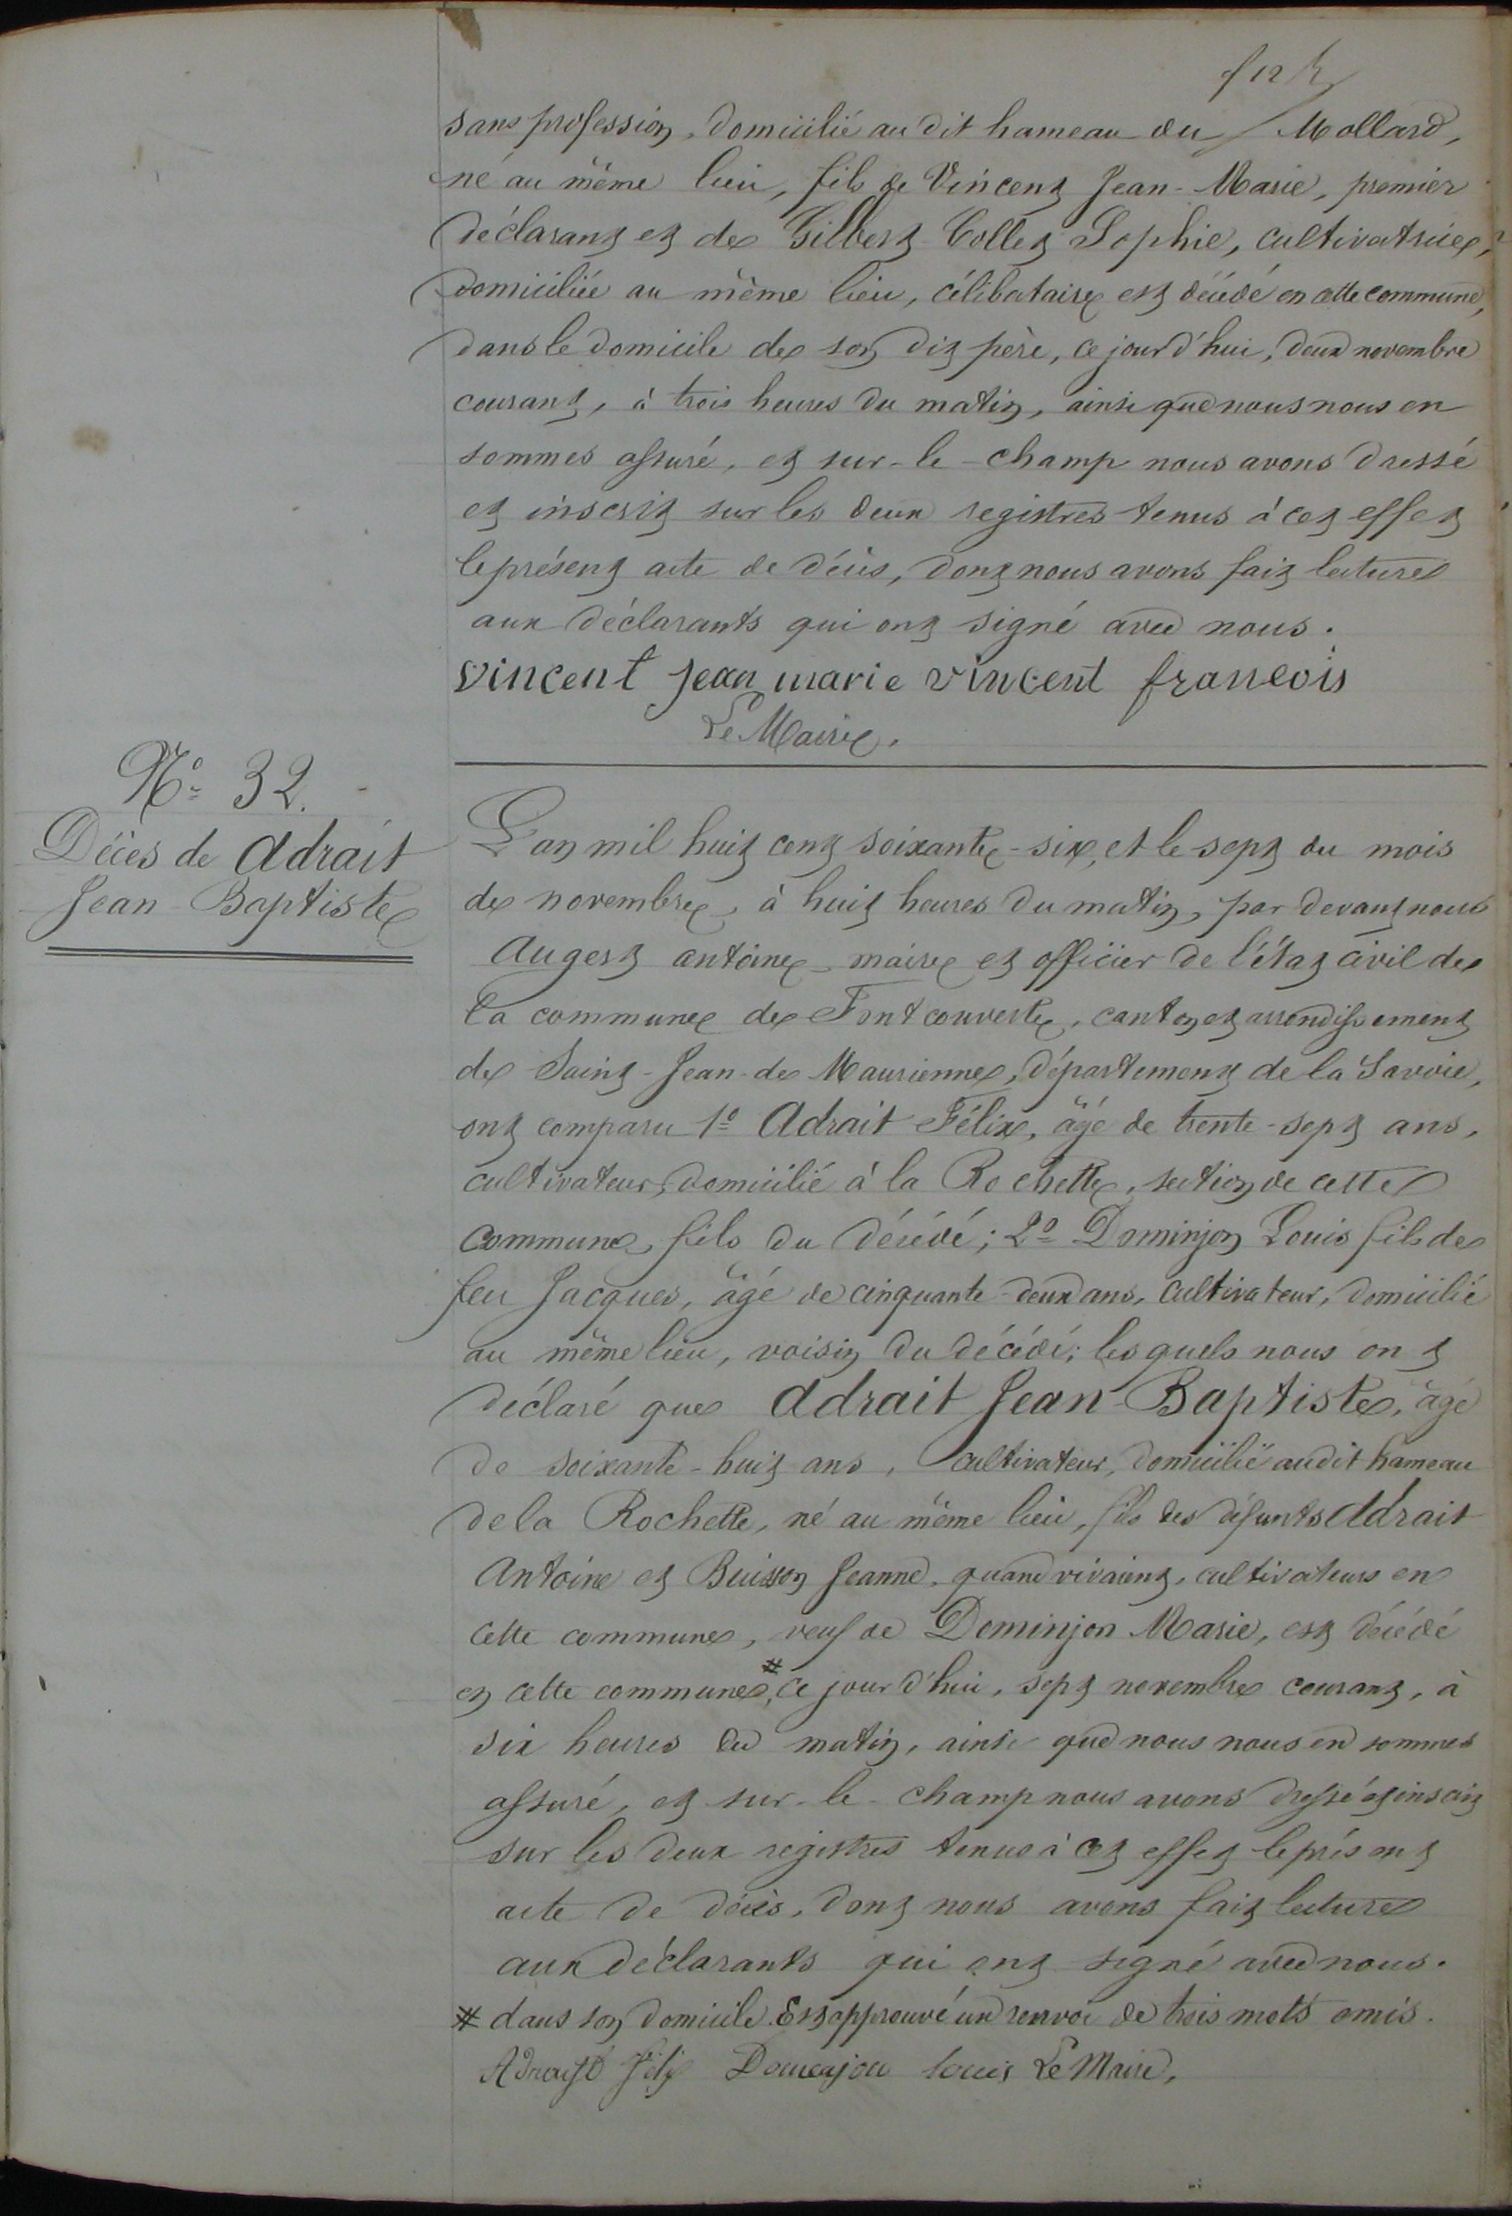 sans profession, domicilié audit hameau du Mollard,
né au même lieu, fils de Vincent Jean-Marie, premier
déclarant et de Gilbert-Collet Sophie, cultivatrice,
domiciliée au même lieu, célibataire est décédé en cette commune,
dans le domicile de son dit père, ce jourd'hui, deux novembre
courant, à trois heures du matin, ainsi que nous nous en
sommes assuré, et sur-le-champ nous avons dressé
et inscrit sur les deux registres tenus à cet effet
le présent acte de décès, dont nous avons fait lecture
aux déclarants qui ont signé avec nous.
vincent jean marie vincent francois
Le Maire.
N° 32.
Décès de Adrait
Jean-Baptiste
L'an mil huit cent soixante-six, et le sept du mois
de novembre, à huit heures du matin, par devant nous
Augert antoine maire et officier de l'état civil de
la commune de Fontcouverte, canton et arrondissement
de Saint-Jean-de Maurienne, département de la Savoie,
ont comparu 1° Adrait Félix, âgé de trente-sept ans,
cultivateur, domicilié à la Rochette, section de cette
commune, fils du décédé; 2° Dominjon Louis fils de
feu Jacques, âgé de cinquante-deux ans, cultivateur, domicilié
au même lieu, voisin du décédé; lesquels nous ont
déclaré que Adrait Jean-Baptiste, âgé
de soixante-huit ans, cultivateur, domicilié audit hameau
de la Rochette, né au même lieu, fils des défunts Adrait
Antoine et Buisson Jeanne, quand vivaient, cultivateurs en
cette commune, veuf de Dominjon Marie, est décédé
en cette commune,# ce jourd'hui, sept novembre courant, à
six heures du matin, ainsi que nous nous en sommes
assuré, et sur-le-champ nous avons dressé et inscrit
sur les deux registres tenus à cet effet le présent
acte de décès, dont nous avons fait lecture
aux déclarants qui ont signé avec nous.
# dans son domicile. Est approuvé un renvoi de trois mots omis.
Adrait félix Domenjon louis Le Maire,